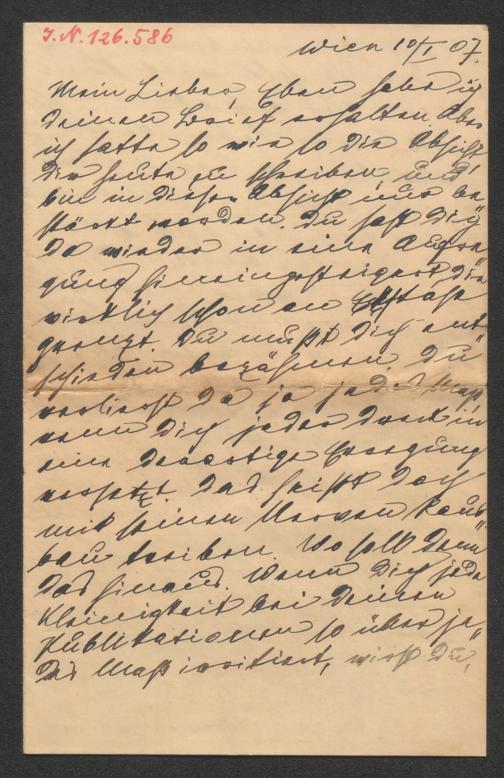 J.N. 126.586
Wien 10/I 07.
Mein Lieber, Eben habe ich
Deinen Brief erhalten. Aber
ich hatte so wie so die Absicht,
Dir heute zu schreiben, und
bin in dieser Absicht nur be-
stärkt worden. Du hast Dich
da wieder in eine Aufre-
gung hineingesteigert, die
wirklich schon an Ekstase
grenzt. Du mußt Dich ent-
schieden bezähmen. Du
verlierst da ja jedes Maß
wenn Dich jeder Dreck in
eine derartige Erregung
versetzt. Das heißt doch
mit seinen Nerven Raub-
bau treiben. Wo soll denn
das hinaus. Wenn Dich jede
Kleinigkeit bei Deinen
Publikationen so über je-
des Maß irritiert, wirst Du,